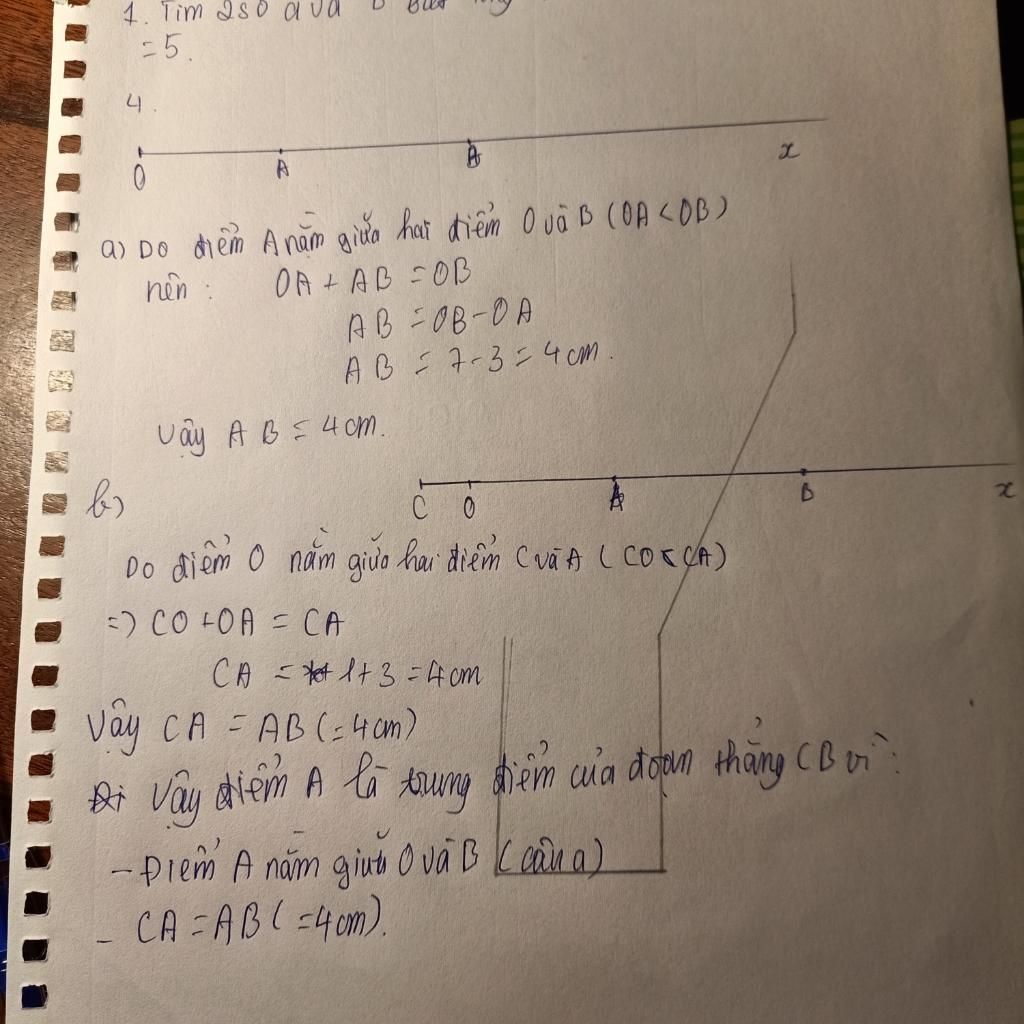 1. Tìm 2 số a và b
= 5.
4.
O A B x
a) Do điểm A nằm giữa hai điểm O và B (OA < OB)
nên : OA + AB = OB
AB = OB - OA
AB = 7 - 3 = 4 cm.
Vậy AB = 4 cm.
b)
C O A B x
Do điểm O nằm giữa hai điểm C và A (CO < CA)
=> CO + OA = CA
CA = 1 + 3 = 4 cm
Vậy CA = AB (= 4 cm)
Vậy điểm A là trung điểm của đoạn thẳng CB vì :
- Điểm A nằm giữa O và B (câu a)
- CA = AB ( = 4 cm).